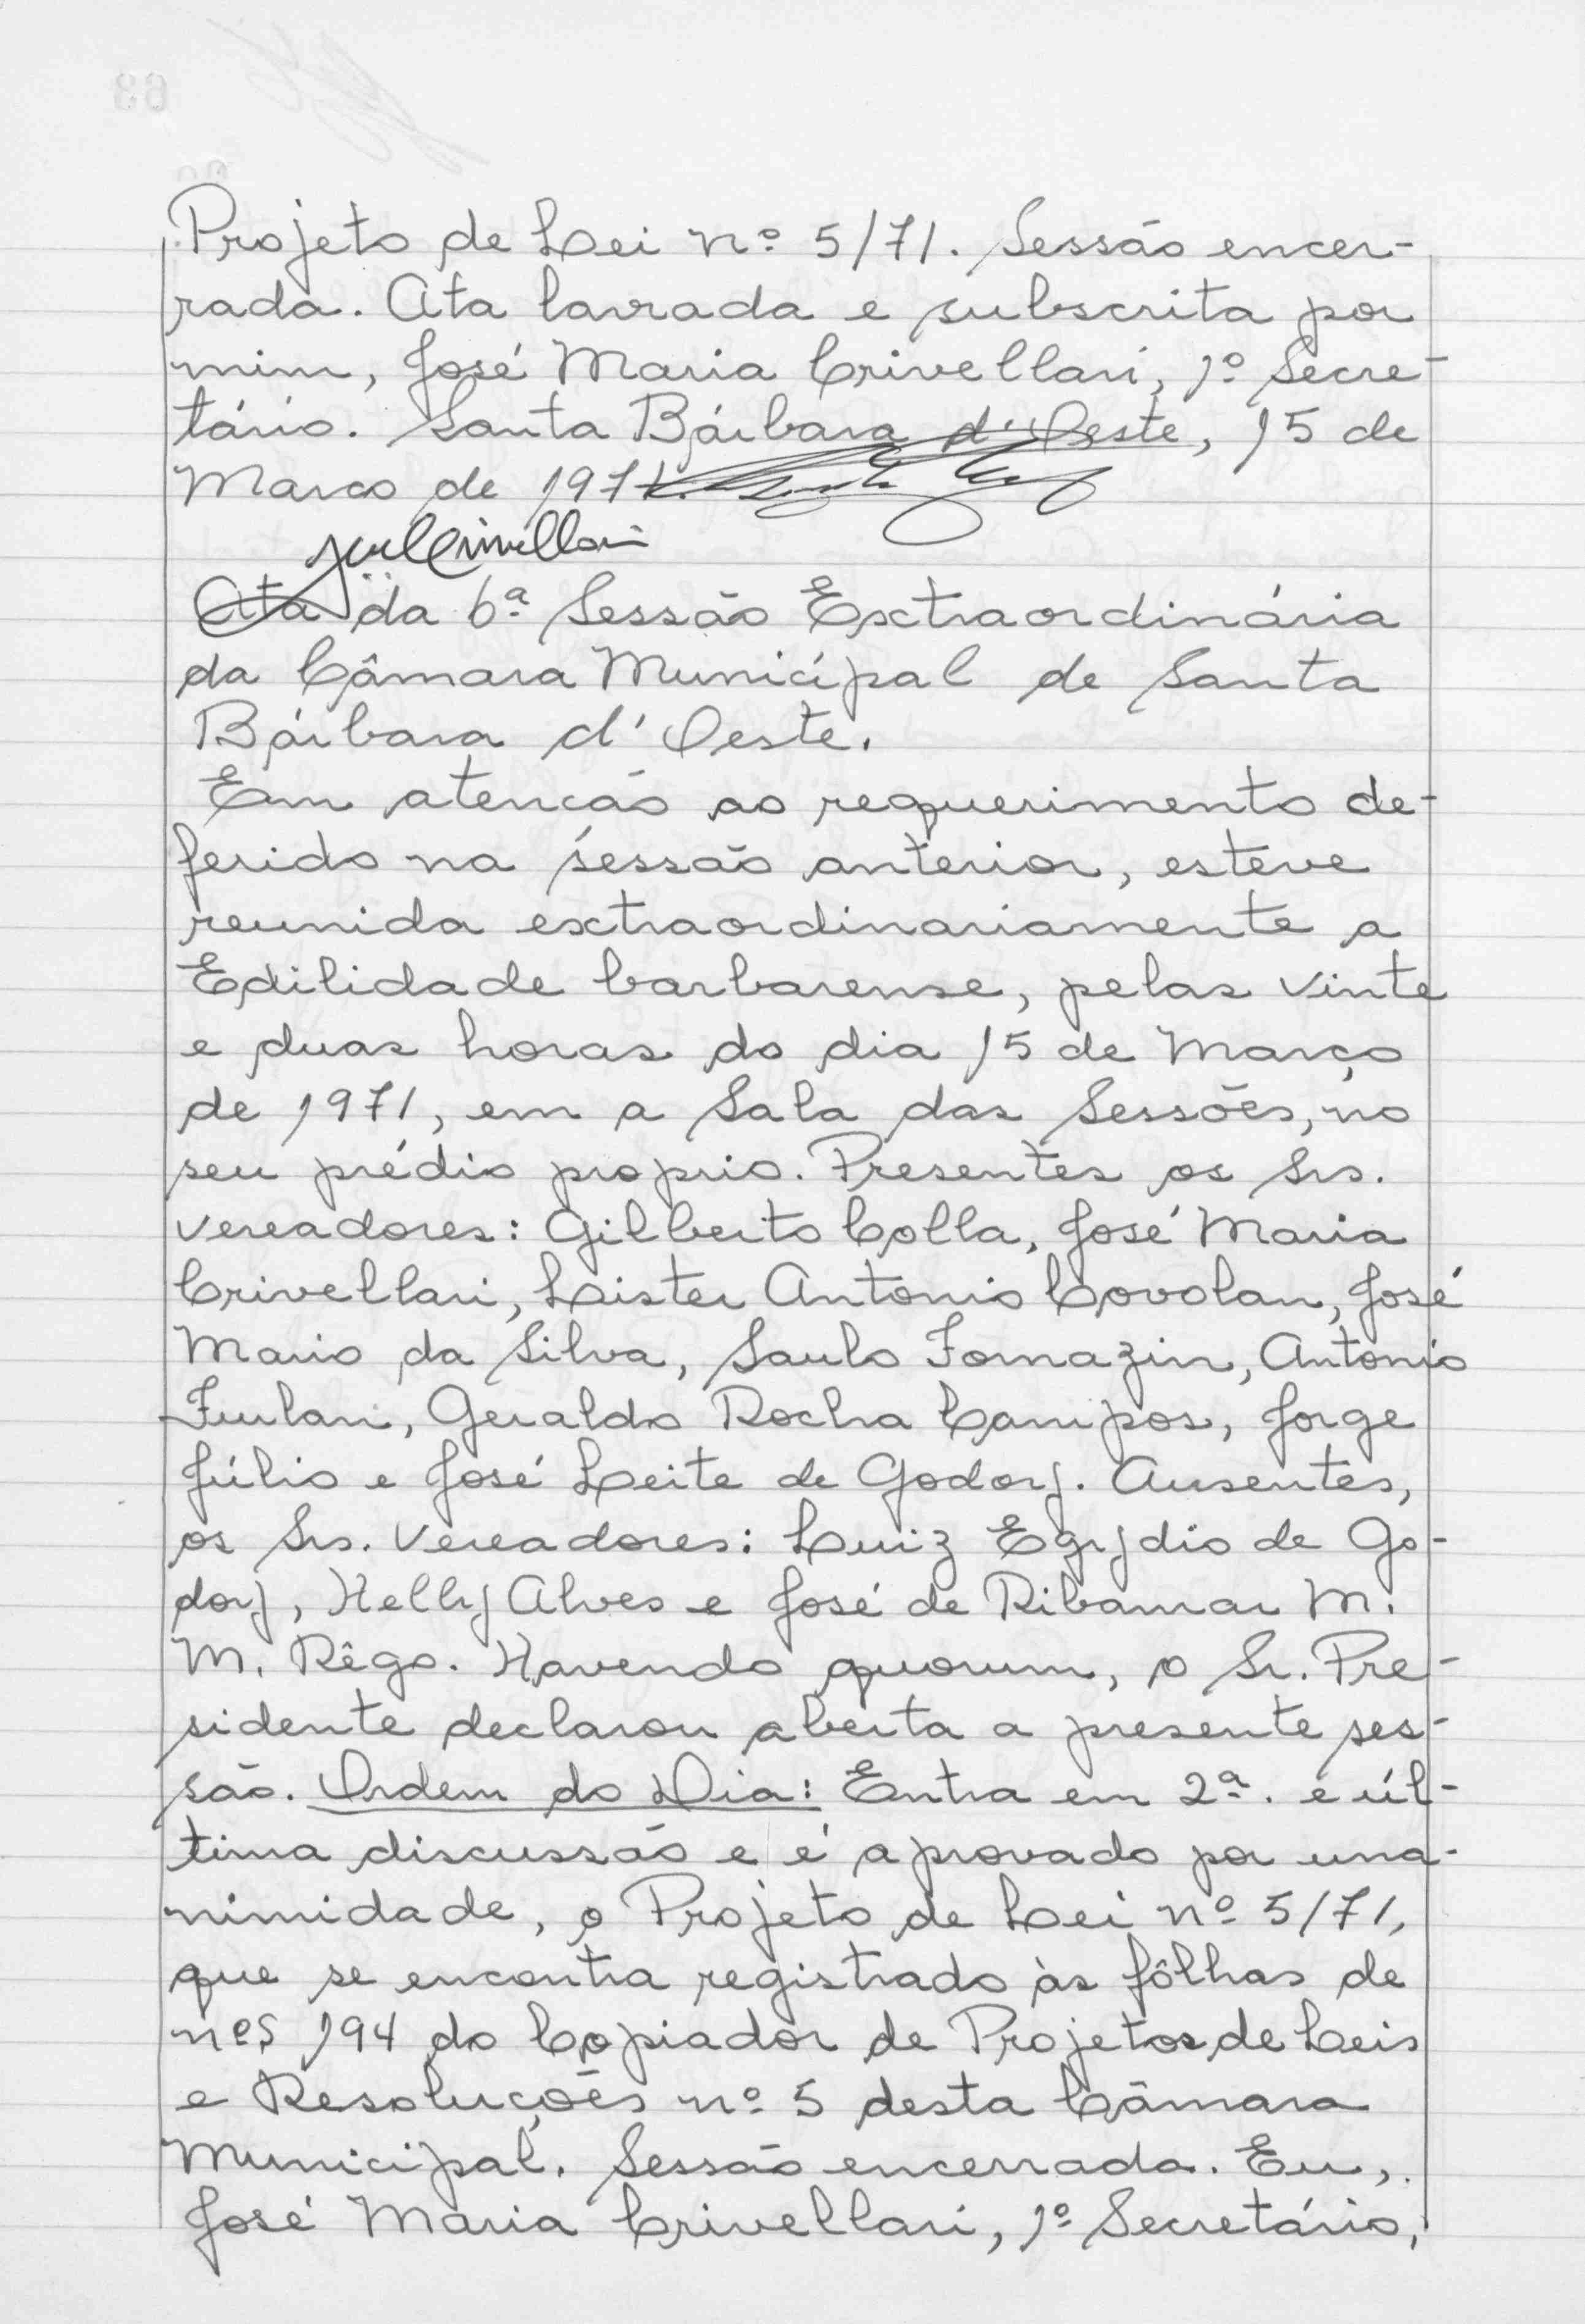 Projeto de Lei nº 5/71. Sessão encer-
rada. Ata lavrada e subscrita por
mim, José Maria Crivellari, 1º Secre-
tário. Santa Bárbara d'Oeste, 15 de
Marco de 1971.
Ata da 6ª Sessão Extraordinária
da Câmara Municípal de Santa
Bárbara d'Oeste.
Em atencão ao requerimento de-
ferido na sessão anterior, esteve
reunida extraordinariamente a
Edilidade barbarense, pelas vinte
e duas horas do dia 15 de Março
de 1971, em a Sala das Sessões, no
seu prédio proprio. Presentes os Srs.
Vereadores: Gilberto Colla, José Maria
Crivellari, Lister Antonio Covolan, José
Mario da Silva, Saulo Fornazin, Antonio
Furlan, Geraldo Rocha Campos, Jorge
Júlio e José Leite de Godoy. Ausentes,
os Srs. Vereadores: Luiz Egydio de Go-
doy, Helly Alves e José de Ribamar M.
M. Rêgo. Havendo quorum, o Sr. Pre-
sidente declarou aberta a presente ses-
são. Ordem do Dia: Entra em 2ª. e úl-
tima discussão e é aprovado por una-
nimidade, o Projeto de Lei nº 5/71,
que se encontra registrado às fôlhas de
nºs 194 do Copiador de Projetos de Leis
e Resoluções nº 5 desta Câmara
Municipal. Sessão encerrada. Eu,
José Maria Crivellari, 1º Secretário,